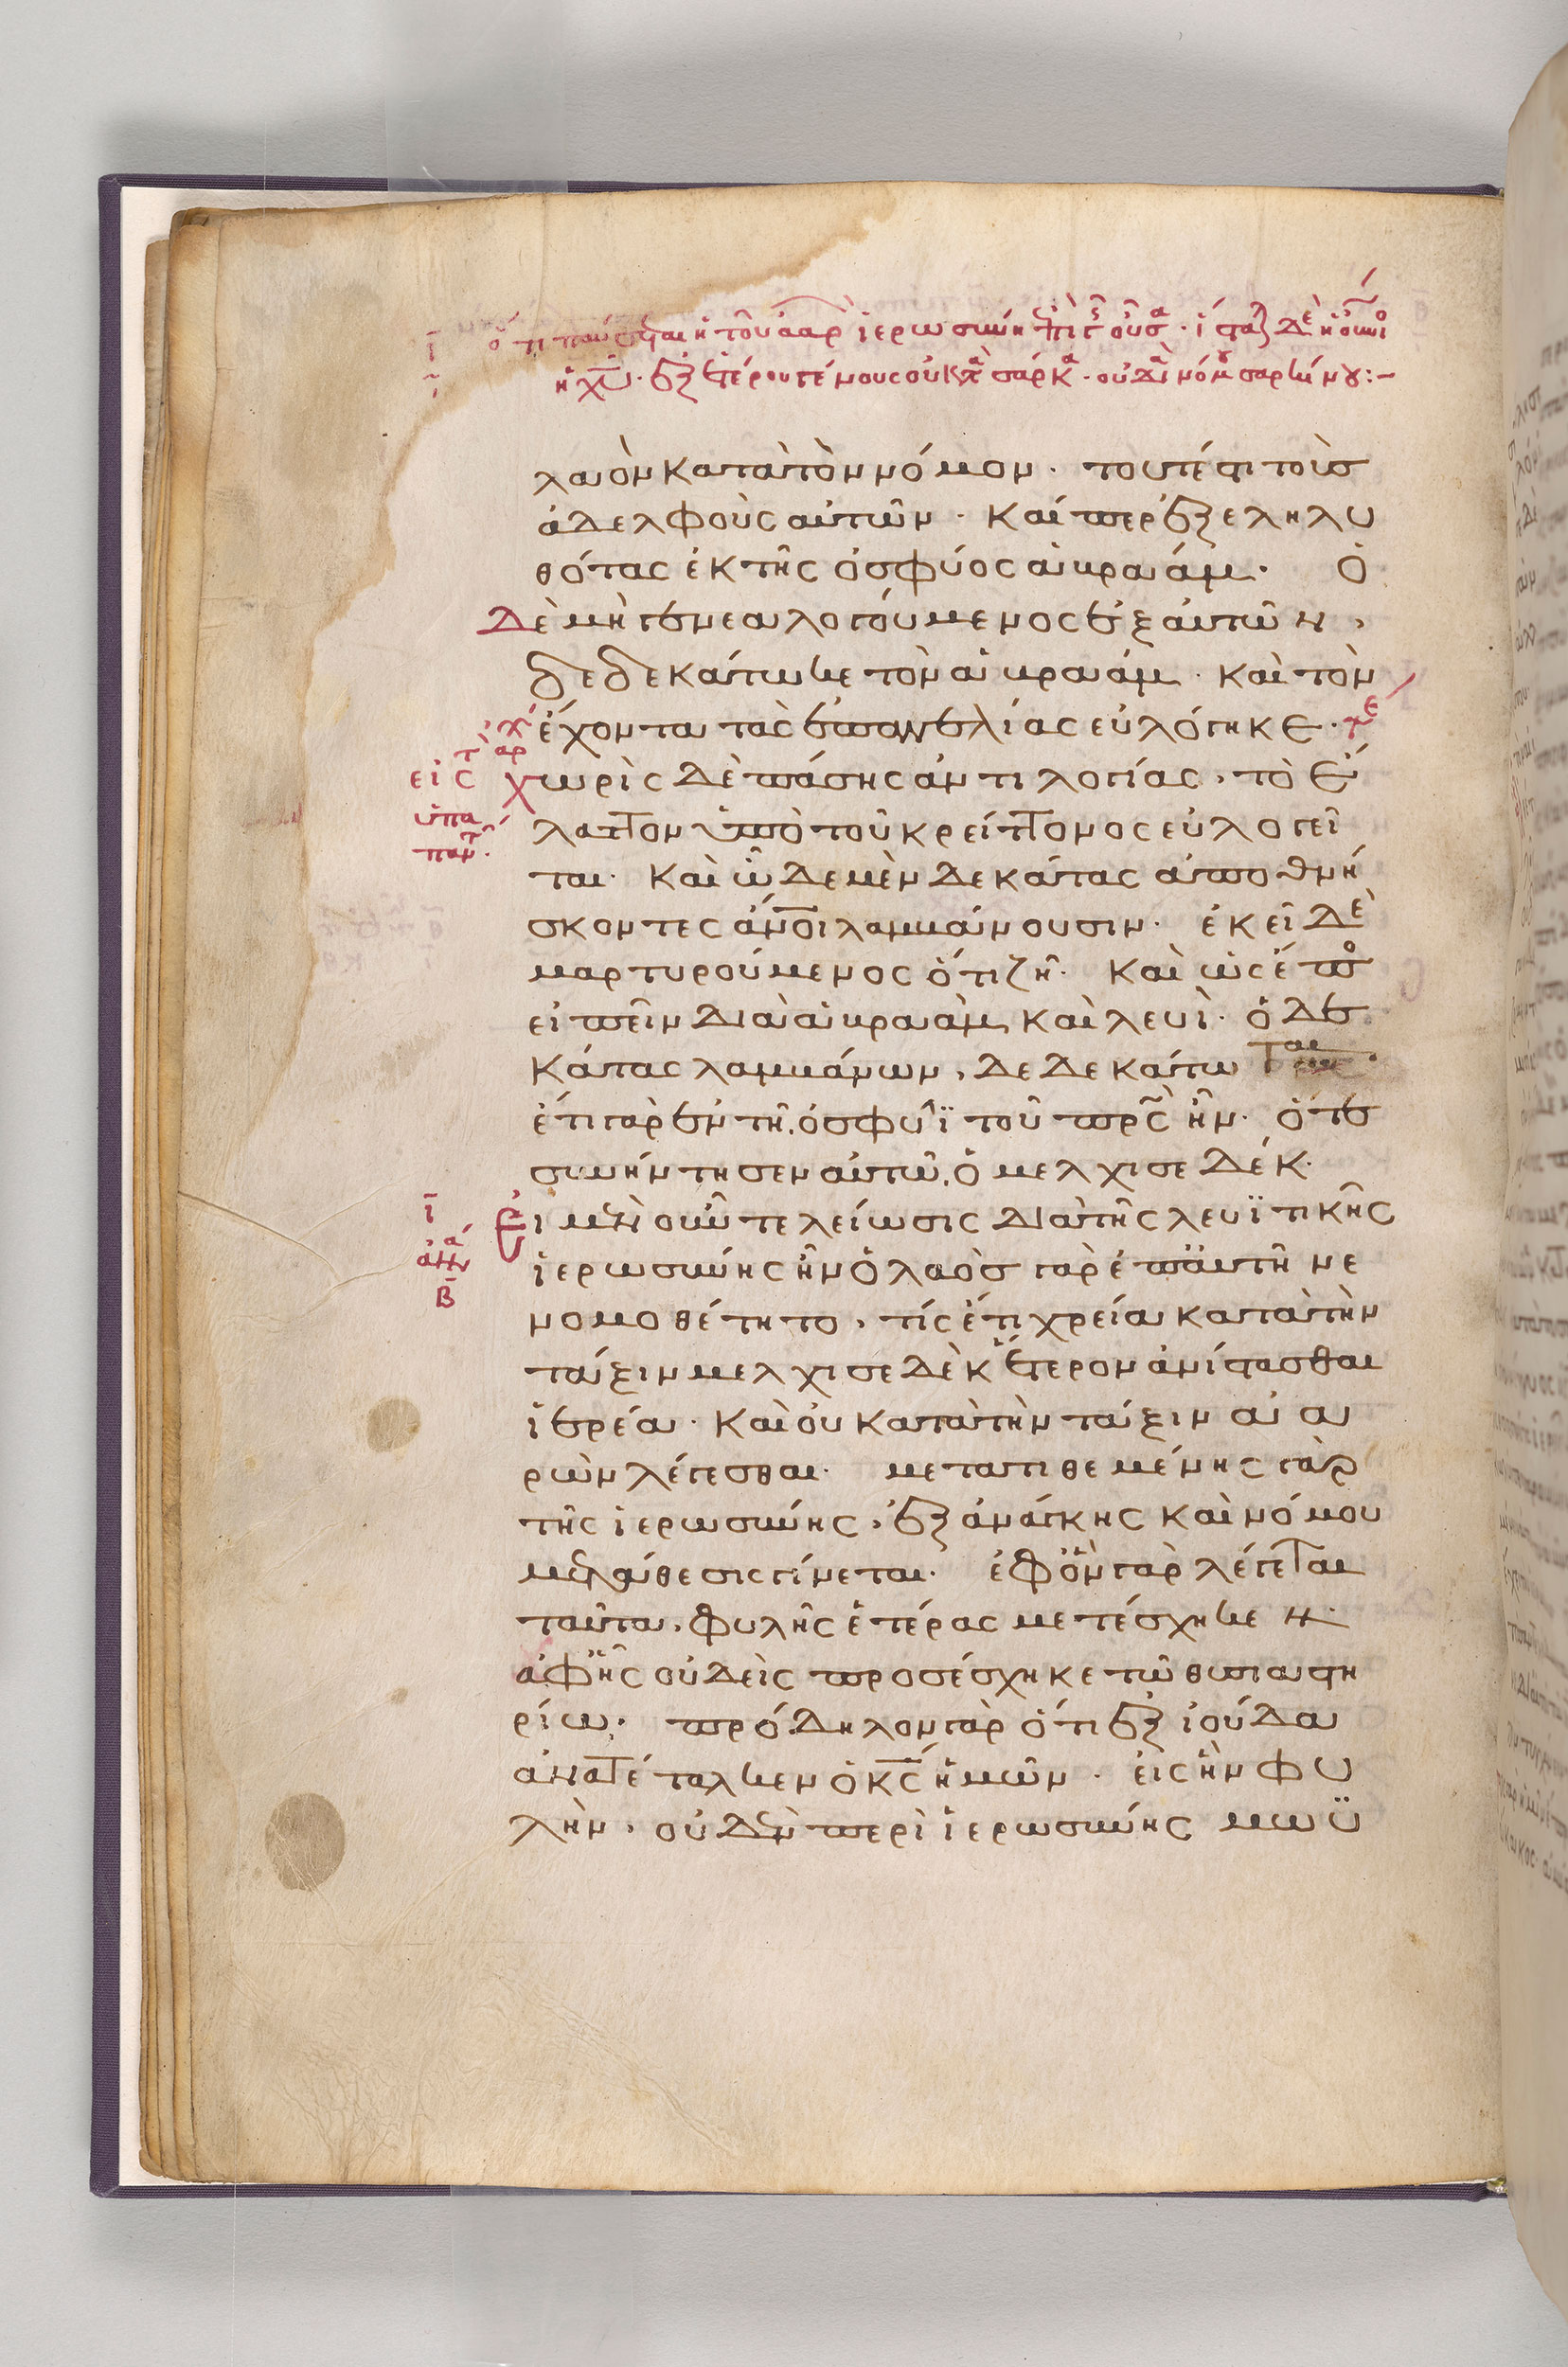 ὅτι παύσεται ἡ τοῦ ἀαρ ἱερωσύνη ἐπὶ γῆς οὖσα · ἵσταται δὲ ἡ οὐνιο
ἡ χυ · ἐξ ἑτέρου γένους οὐ κατὰ σάρκα · οὐ διὰ νόμου σαρκίνου :-
λαὸν κατὰ τὸν νόμον · τουτέστι τοὺς
ἀδελφοὺς αὐτῶν · καίπερ ἐξεληλυ
θότας ἐκ τῆς ὀσφύος ἀβραάμ · Ὁ
δὲ μὴ γενεαλογούμενος ἐξ αὐτῶν ,
δεδεκάτωκε τὸν ἀβραάμ · καὶ τὸν
ἔχοντα τὰς ἐπαγγελίας εὐλόγηκε ·
χωρὶς δὲ πάσης ἀντιλογίας , τὸ ἔ
εἰς τ
ὑπα
παν
λαττον ὑπὸ τοῦ κρείττονος εὐλογεῖ
ται · Καὶ ὧδε μὲν δεκάτας ἀποθνή
σκοντες ἄνοι λαμβάνουσιν · ἐκεῖ δὲ
μαρτυρούμενος ὅτι ζῇ · Καὶ ὡς ἔπος
εἰπεῖν διὰ ἀβραὰμ καὶ λευὶ · ὁ δε
κάτας λαμβάνων , δεδεκάτωται ·
ἔτι γὰρ ἐν τῇ ὀσφύϊ τοῦ πρς ἦν · ὅτε
συνήντησεν αὐτῷ ὁ μελχισεδέκ ·
ι
β
Εἰ μὲν οὖν τελείωσις διὰ τῆς λευϊτικῆς
ἱερωσύνης ἦν ὁ λαὸς γὰρ ἐπ' αὐτῇ νε
νομοθέτητο , τίς ἔτι χρεία κατὰ τὴν
τάξιν μελχισεδὲκ ἕτερον ἀνίστασθαι
ἱερέα · καὶ οὐ κατὰ τὴν τάξιν ἀα
ρὼν λέγεσθαι · μετατιθεμένης γὰρ
τῆς ἱερωσύνης , ἐξ ἀνάγκης καὶ νόμου
μετάθεσις γίνεται · ἐφ' ὃν γὰρ λέγεται
ταῦτα , φυλῆς ἑτέρας μετέσχηκεν ·
ἀφ' ἧς οὐδεὶς προσέσχηκε τῷ θυσιαστη
ρίῳ · πρόδηλον γὰρ ὅτι ἐξ ἰούδα
ἀνατέταλκεν ὁ κς ἡμῶν · εἰς ἣν φυ
λὴν , οὐδὲν περὶ ἱερωσύνης μωϋ